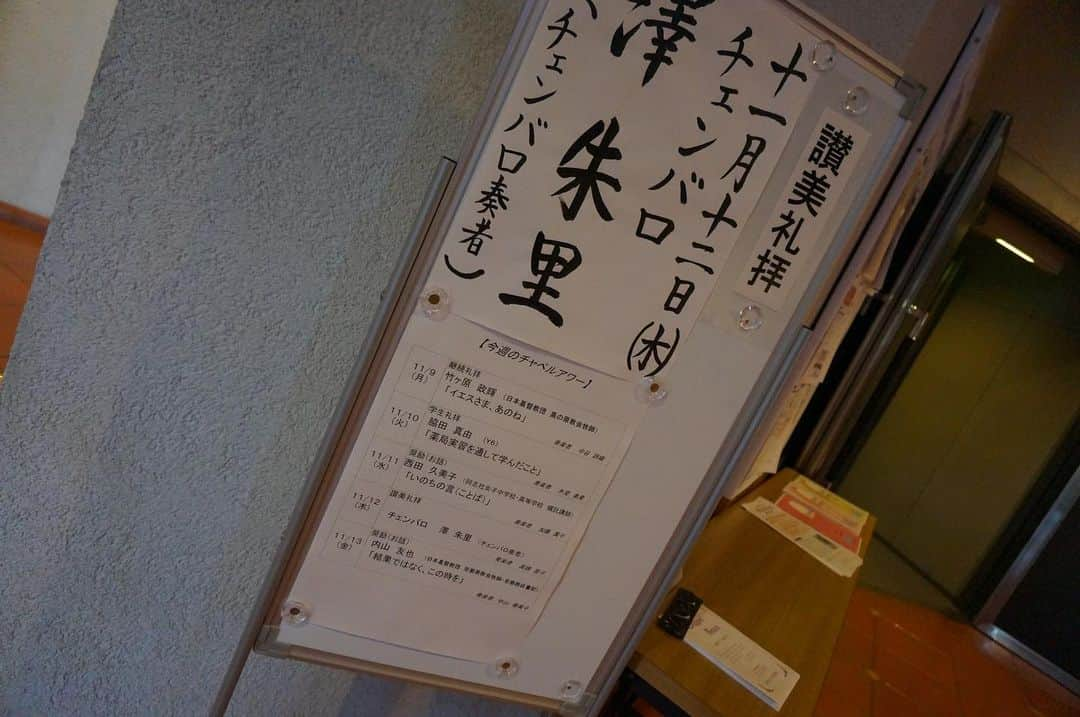 讃美礼拝
十一月十二日㈭
チェンバロ
澤 朱里
（チェンバロ奏者）
【今週のチャペルアワー】
11/9
（月）
継続礼拝
竹ヶ原 政輝 （日本基督教団 真の泉教会牧師）
「イエスさま、あのね」
奏楽者
11/10
（火）
学生礼拝
脇田 真由 （Y6）
「薬局実習を通して学んだこと」
奏楽者
11/11
（水）
奨励（お話）
西田 久美子 （同志社女子中学校・高等学校 嘱託講師）
「いのちの言（ことば）」
奏楽者
11/12
（木）
讃美礼拝
チェンバロ 澤 朱里 （チェンバロ奏者）
奏楽者
11/13
（金）
奨励（お話）
内山 友也
「結果ではなく、この時を」
奏楽者